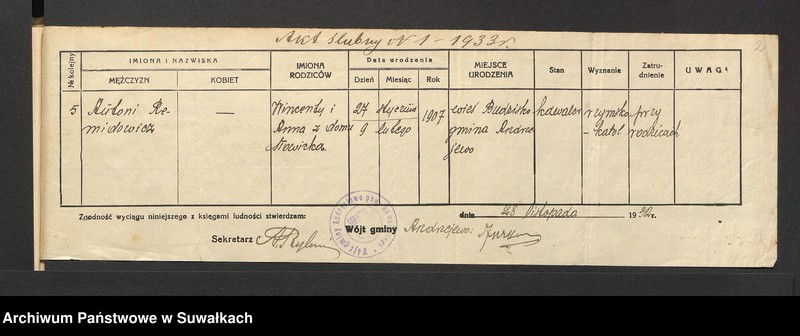 Akt ślubny N 1 – 1933 r.
2
№ kolejny
IMIONA I NAZWISKA
MĘŻCZYZN
KOBIET
IMIONA RODZICÓW
Data urodzenia
Dzień
Miesiąc
Rok
MIEJSCE URODZENIA
Stan
Wyznanie
Zatrudnienie
UWAGI
5
Antoni Re-
midowicz
—
Wincenty i
Anna z domu
27
9
stycznia
lutego
1907
wieś Budzisko
gmina Andrze
jewo
kawaler
rzymsko
- katol
przy
rodzicach
Zgodność wyciągu niniejszego z księgami ludności stwierdzam:
dnia 28 listopada 1932 r.
Sekretarz
Wójt gminy Andrzejewo:
Archiwum Państwowe w Suwałkach